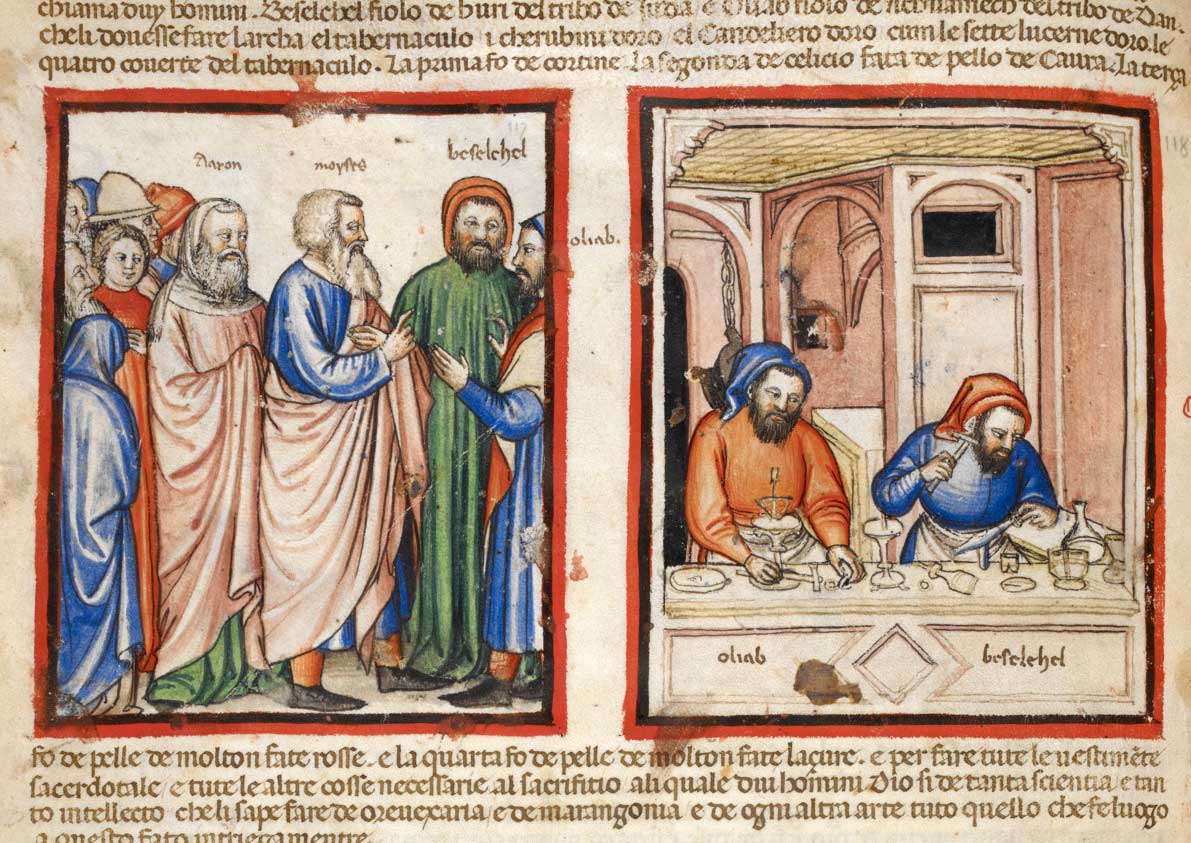 chiama duy homini. Beselehel fiolo de huri del tribo de iuda e Oliab fiolo de Achisamech del tribo de Dan.
cheli douesse fare larcha el tabernaculo i cherubini doro el Candeliero doro cum le sette lucerne doro. le
quatro couerte del tabernaculo. La prima fo de cortine. La segonda de celicio fata de pello de Caura. La terça
Aaron
moyses
117
beselehel
oliab.
118
oliab
beselehel
fo de pelle de molton fate rosse. e la quarta fo de pelle de molton fate laçure. e per fare tute le uestimēte
sacerdotale e tute le altre cosse necessarie al sacrifitio ali quale dui homini Dio si de tanta scientia e tan
to intellecto cheli sape fare de oreuexaria e de marangonia e de ogni altra arte tuto quello che fe luogo
a questo fato intriegamentre.